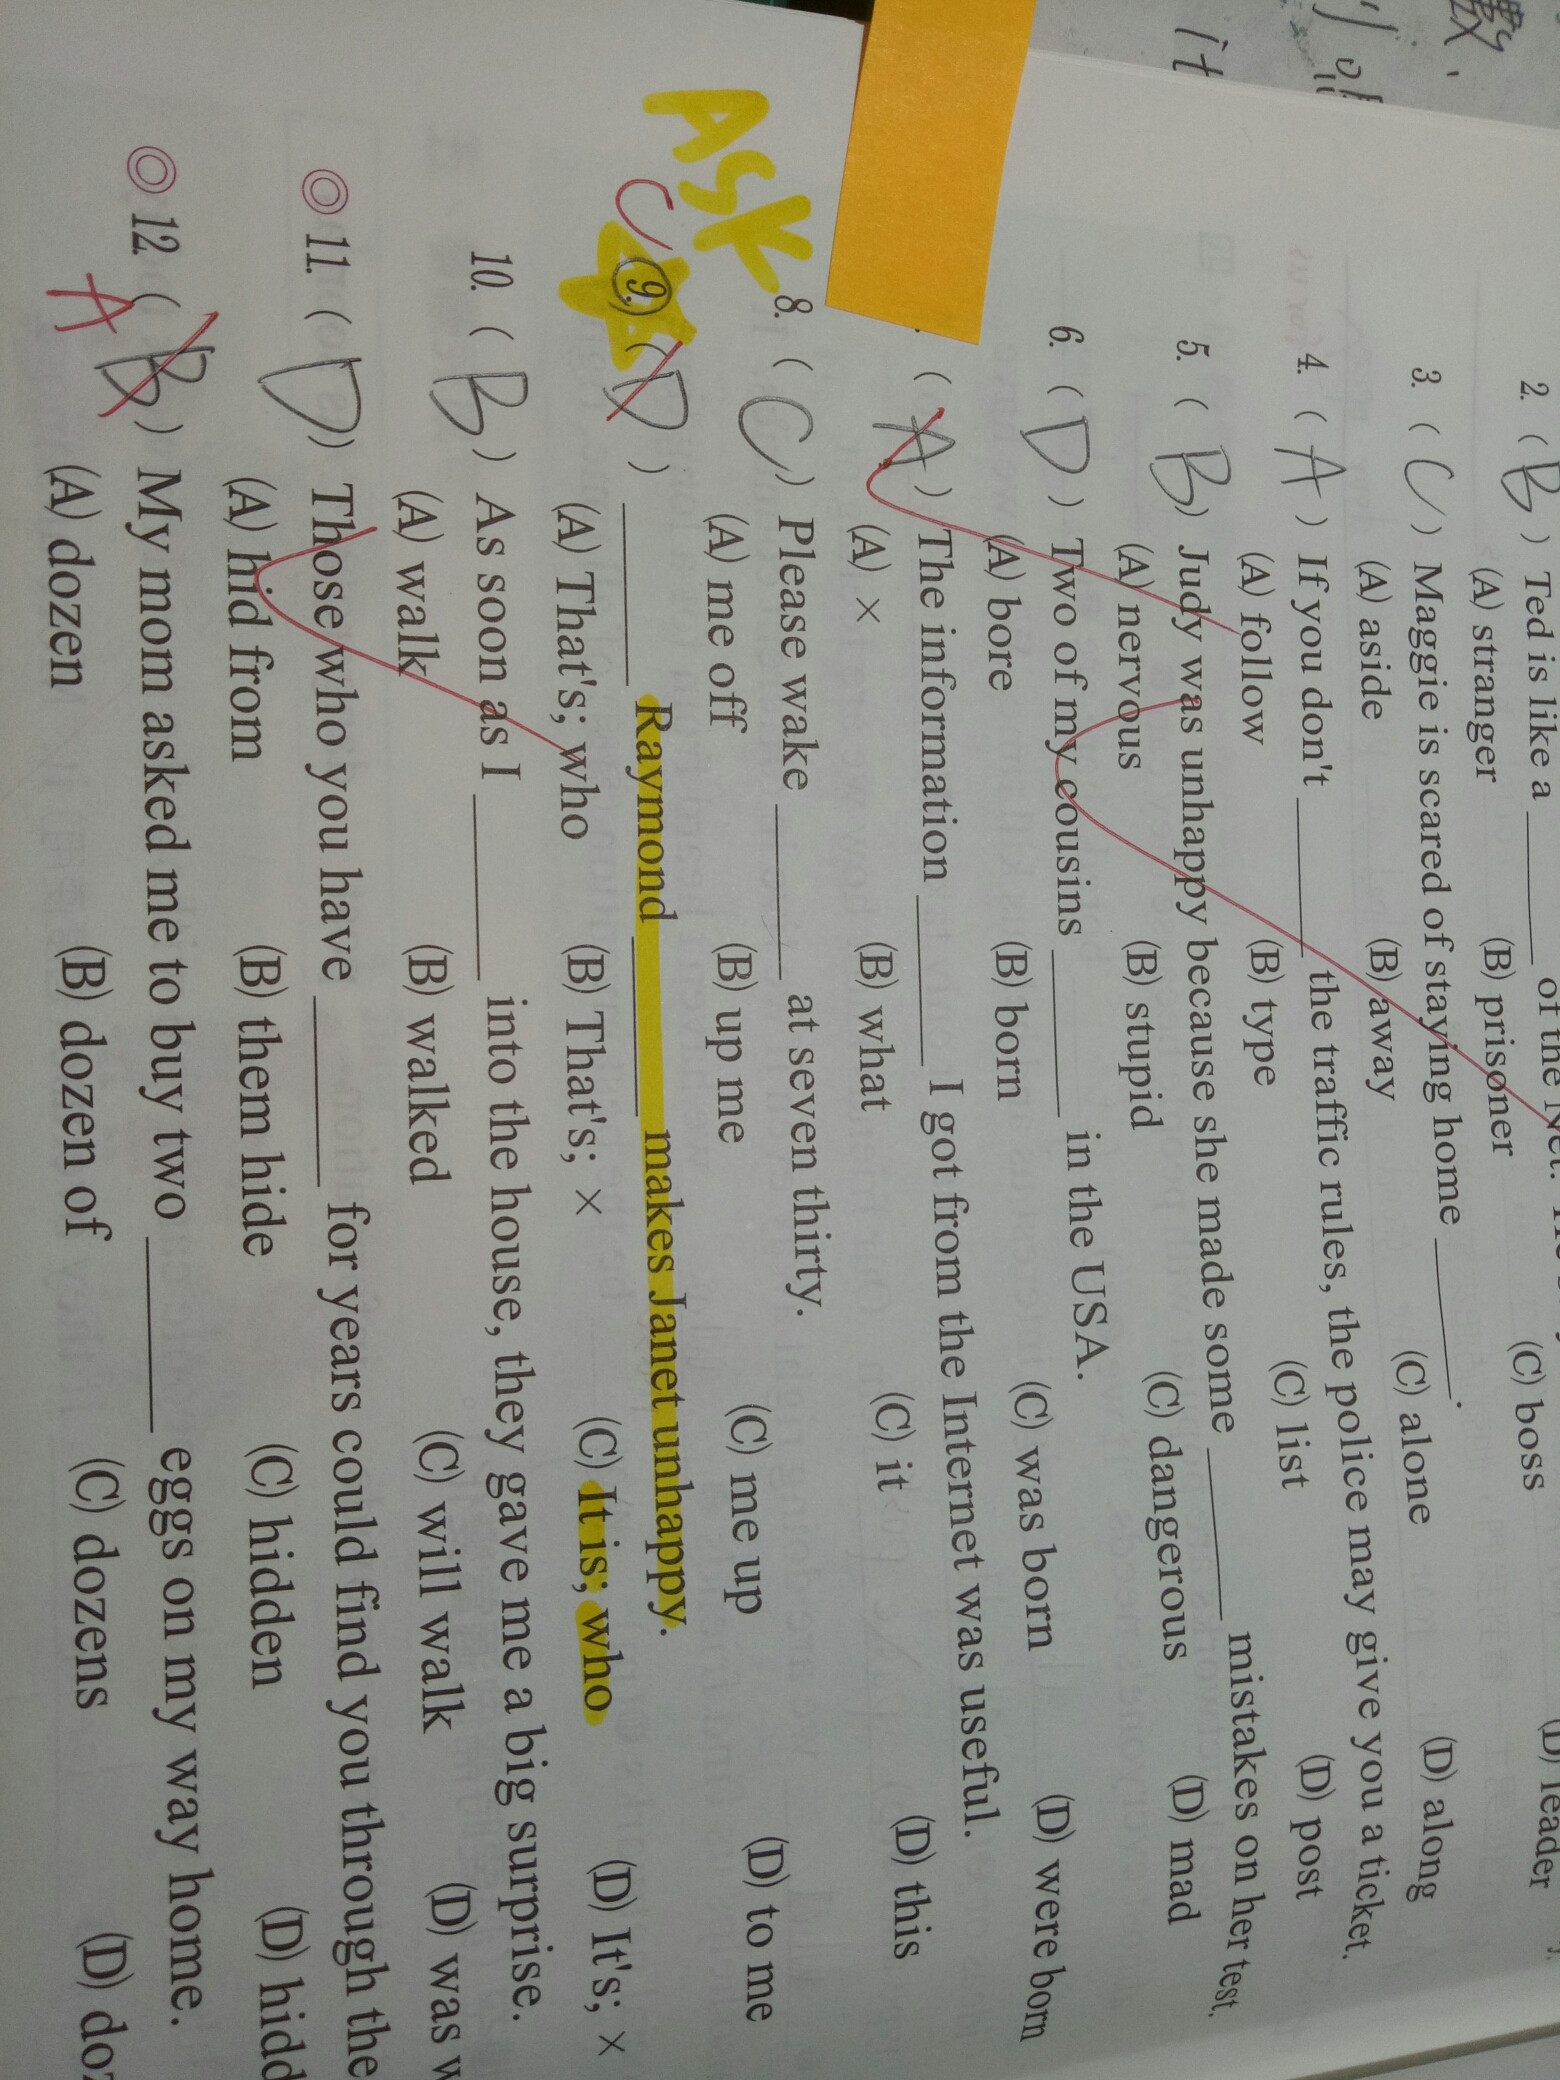 數,
it
2. ( B ) Ted is like a ______ of the Net.
(A) stranger (B) prisoner (C) boss (D) leader
3. ( C ) Maggie is scared of staying home ______.
(A) aside (B) away (C) alone (D) along
4. ( A ) If you don't ______ the traffic rules, the police may give you a ticket.
(A) follow (B) type (C) list (D) post
5. ( B ) Judy was unhappy because she made some ______ mistakes on her test.
(A) nervous (B) stupid (C) dangerous (D) mad
6. ( D ) Two of my cousins ______ in the USA.
(A) bore (B) born (C) was born (D) were born
( A ) The information ______ I got from the Internet was useful.
(A) × (B) what (C) it (D) this
8. ( C ) Please wake ______ at seven thirty.
(A) me off (B) up me (C) me up (D) to me
ASK
C 9. ( D ) ______ Raymond ______ makes Janet unhappy.
(A) That's; who (B) That's; × (C) It is; who (D) It's; ×
10. ( B ) As soon as I ______ into the house, they gave me a big surprise.
(A) walk (B) walked (C) will walk (D) was w
◎ 11. ( D ) Those who you have ______ for years could find you through the
(A) hid from (B) them hide (C) hidden (D) hidd
◎ 12. ( B ) My mom asked me to buy two ______ eggs on my way home.
A (A) dozen (B) dozen of (C) dozens (D) doz